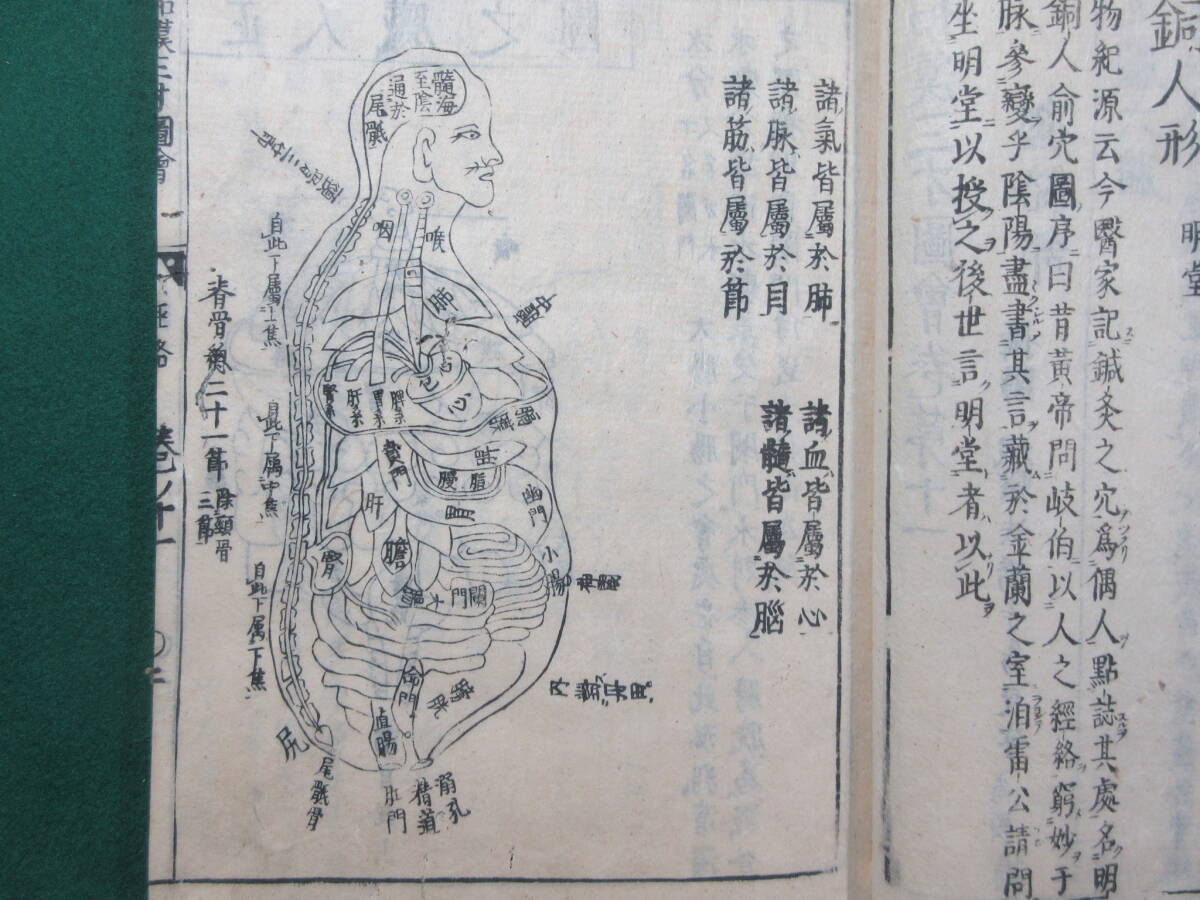 銅人形
明堂
物紀源云今醫家記鍼灸之穴爲偶人點誌其處名明
銅人俞穴圖序曰昔黃帝問岐伯以人之經絡窮妙于
脉參變乎陰陽盡書其言藏於金蘭之室洎雷公請問
坐明堂以授之後世言明堂者以此
諸氣皆屬於肺
諸脉皆屬於目
諸筋皆屬於節
諸血皆屬於心
諸髓皆屬於腦
髓海
至陰
通於
尾骶
咽
喉
肺
心
腎系
肝系
胃系
脾系
賁門
肝
胃
幽門
膽
腎
小腸
闌門
命門
直腸
自此下屬上焦
自此下属中焦
自此下属下焦
脊骨
二十一節
除頸骨
三節
尻
尾骶骨
肛門
精道
溺孔
三才圖會
經絡